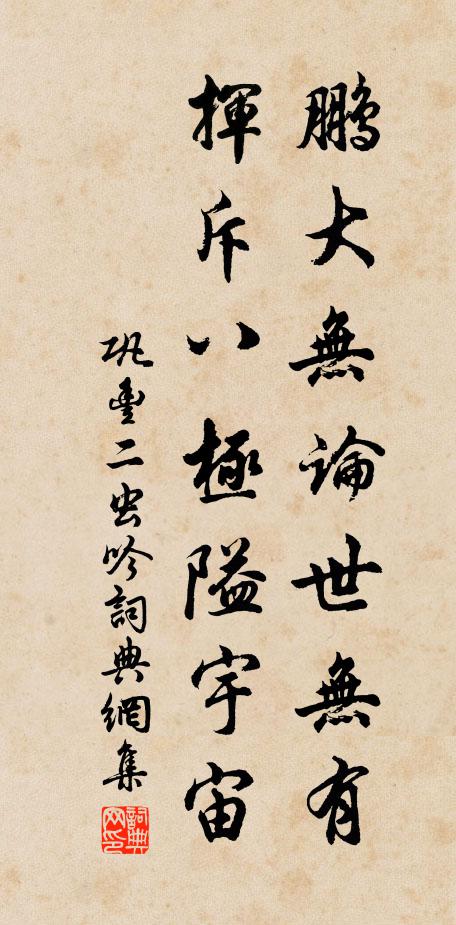 鵬大無論世無有
揮斥八極隘宇宙
巩豊二虫吟詞典網集
詞典
网印